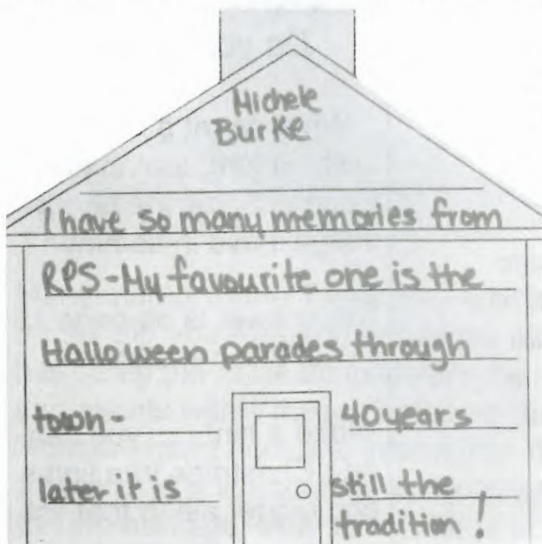 Michele
Burke
I have so many memories from
RPS-My favourite one is the
Halloween parades through
town- 40 years
later it is still the
tradition!